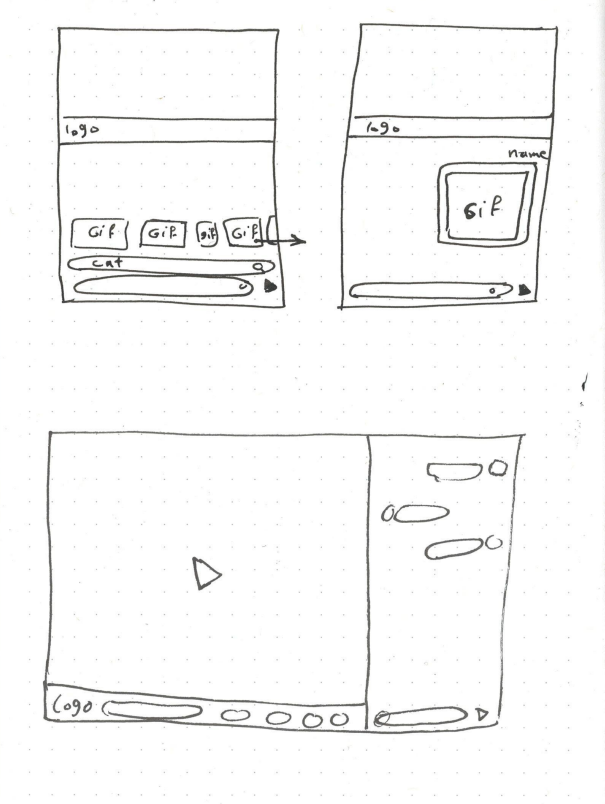 logo
Gif Gif gif Gif
cat
logo
name
Gif
Logo